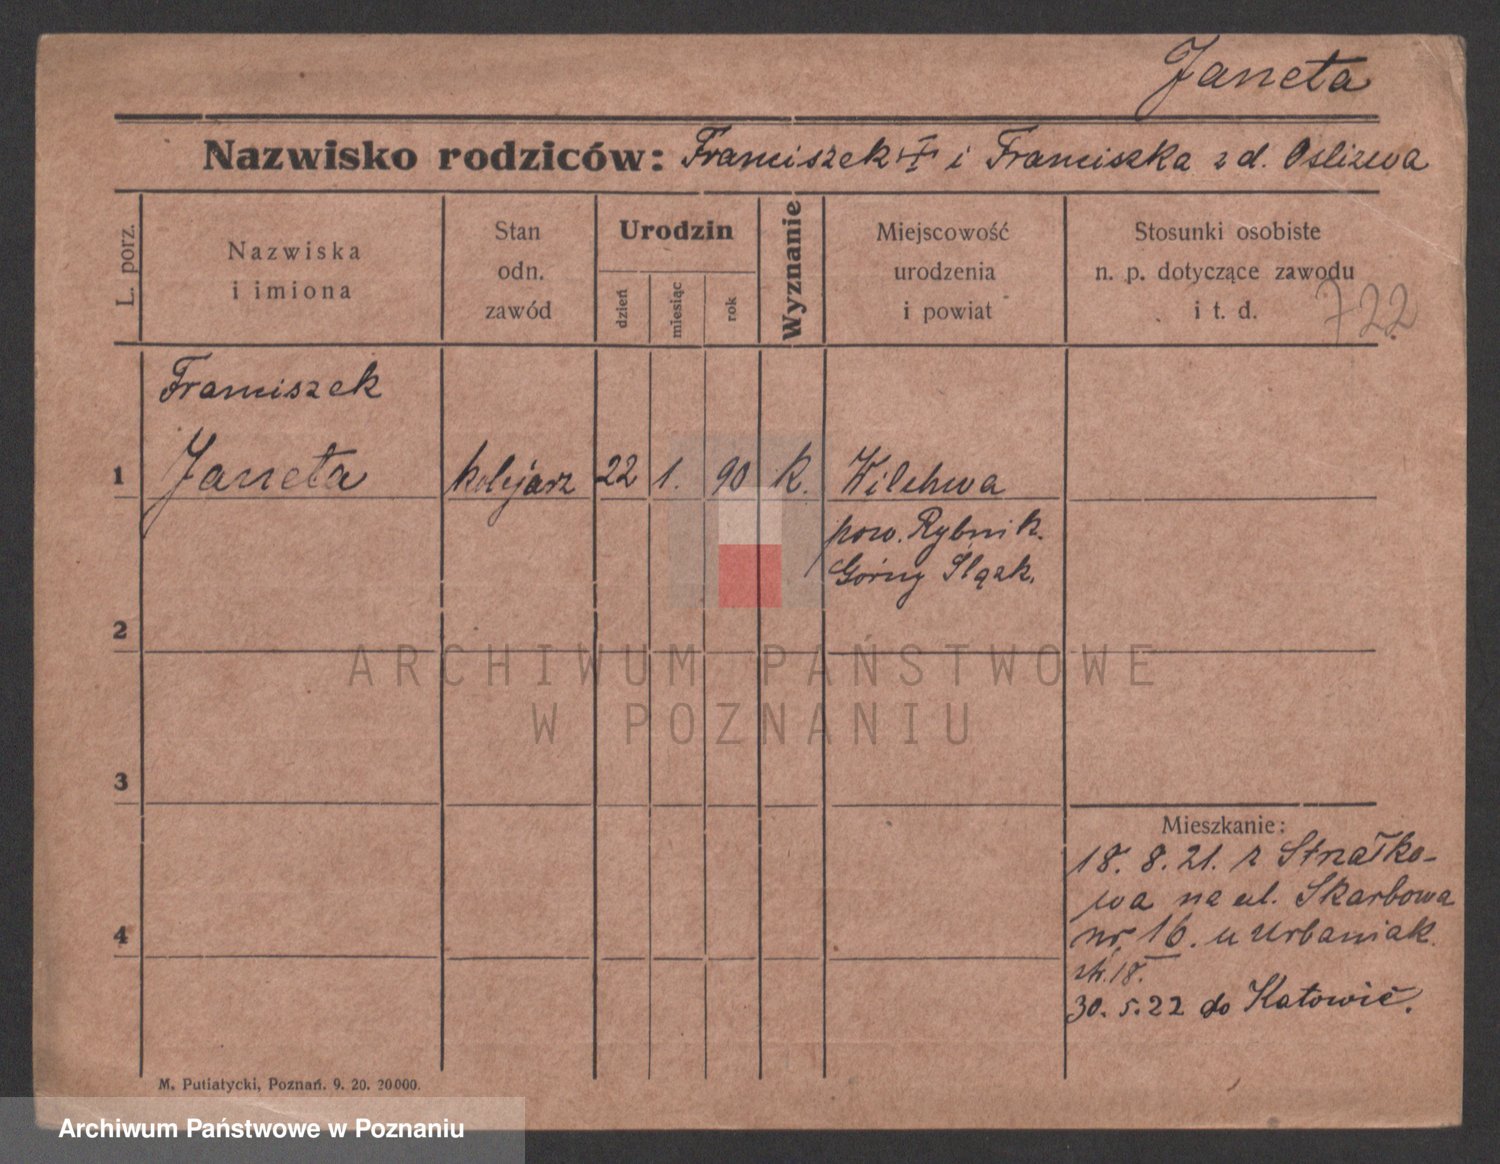 Janeta
Nazwisko rodziców: Franciszek + i Franciszka z d. Oslizwa
L. porz.
Nazwiska
i imiona
Stan
odn.
zawód
Urodzin
dzień
miesiąc
rok
Wyznanie
Miejscowość
urodzenia
i powiat
Stosunki osobiste
n. p. dotyczące zawodu
i t. d.
722
Franciszek
1 Janeta kolejarz 22 1. 90 K. Wilchwa
pow. Rybnik.
Górny Ślązk.
2
ARCHIWUM PAŃSTWOWE
W POZNANIU
3
Mieszkanie:
18. 8. 21. z Strałko-
wa na ul. Skarbowa
4 nr 16. u Urbaniak.
18.
30. 5. 22 do Katowic.
M. Putiatycki, Poznań. 9. 20. 20000.
Archiwum Państwowe w Poznaniu